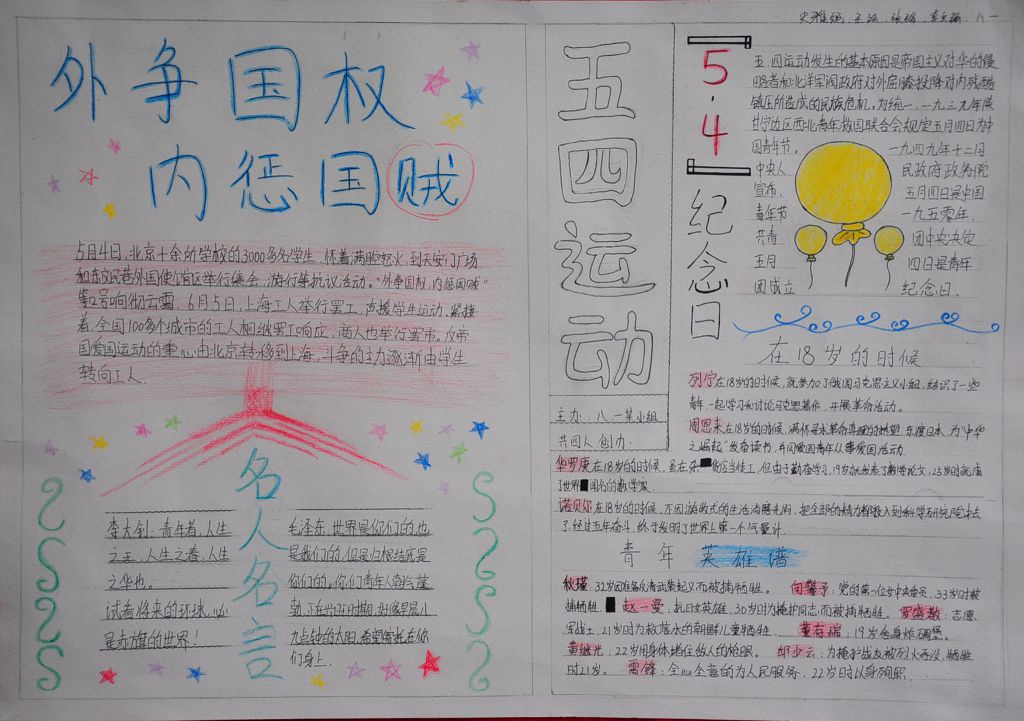 外争国权
内惩国贼
5月4日,北京十余所学校的3000多名学生,怀着满腔怒火,到天安门广场
和东交民巷外国使馆区举行集会,游行等抗议活动。"外争国权,内惩国贼"
等口号响彻云霄。6月5日,上海工人举行罢工,声援学生运动,紧接
着,全国100多个城市的工人相继罢工响应,商人也举行罢市。反帝
国爱国运动的重心由北京转移到上海,斗争的主力逐渐由学生
转向工人.
名人名言
李大钊:青年者,人生
之王,人生之春,人生
之华也。
试看将来的环球,必
是赤旗的世界!
毛泽东:世界是你们的,也
是我们的,但是归根结底是
你们的。你们青年人朝气蓬
勃,正在兴旺时期,好像早晨八
九点钟的太阳,希望寄托在你
们身上.
五四运动
主办:八.一某小组
共四人创办.
八一
5.4
纪念日
五.四运动发生的基本原因是帝国主义对华的侵
略者和北洋军阀政府对外屈膝投降对内残酷
镇压所造成的民族危机,为统一,一九三九年陕
甘宁边区西北青年救国联合会规定五月四日为中
国青年节。 一九四九年十二月
中央人 民政府政务院
宣布, 五月四日是中国
青年节 一九五零年,
共青 团中央决定
五月 四日是青年
团成立 纪念日.
在18岁的时候
列宁在18岁的时候,就参加了俄国马克思主义小组,结识了一些
青年,一起学习和讨论马克思著作,开展革命活动。
周恩来在18岁的时候,满怀寻求革命真理的愿望,东渡日本,为"中华
之崛起"发奋读书,并同爱国青年从事爱国活动.
华罗庚在18岁的时候,虽在杂货店当徒工,但由于勤奋学习,19岁就发表了数学论文,25岁时就成
了世界闻名的数学家.
诺贝尔在18岁的时候,不因游牧式的生活消磨光阴,把全部的精力都投入到科学研究院中去
了,经过五年奋斗,终于发明了世界上第一个气量计.
青年英雄谱
秋瑾:32岁因准备反清武装起义而被捕牺牲。 向警予:党的第一位女中央委员,33岁时被
捕牺牲 赵一曼:抗日女英雄,30岁时为掩护同志而被捕牺牲。罗盛教:志愿
军战士,21岁时为救落水的朝鲜儿童牺牲. 董存瑞:19岁舍身炸碉堡。
黄继光:22岁用身体堵住敌人的枪眼。 邱少云:为掩护战友被烈火吞没,牺牲
时21岁。 雷锋:全心全意的为人民服务,22岁时以身殉职.